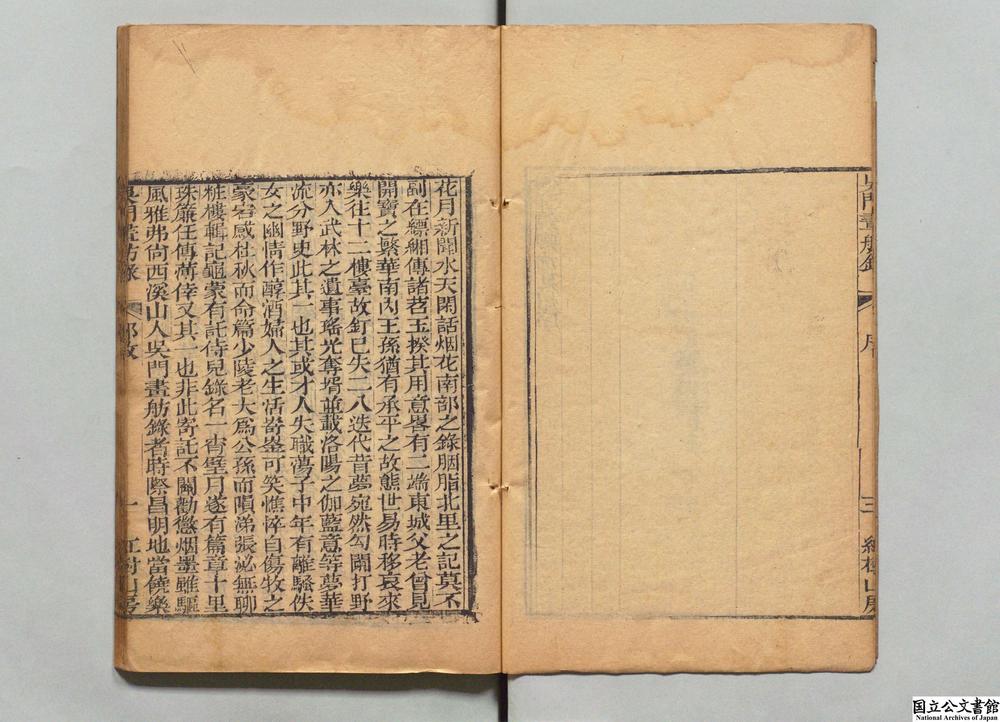 吳門畫舫錄 序 三 紅樹山房
花月新聞水天閑話烟花南部之錄胭脂北里之記莫不
副在縹緗傳諸苕玉揆其用意畧有二端東城父老曾見
開寶之繁華南內王孫猶有承平之故態世易時移哀來
樂往十二樓臺故釘已失二八迭代昔夢宛然勾闌打野
亦入武林之遺事瑤光奪壻並載洛陽之伽藍意等夢華
流分野史此其一也其或才人失職蕩子中年有離騷佚
女之幽情作醇酒婦人之生活嵜崟可笑憔悴自傷牧之
豪宕感杜秋而命篇少陵老大爲公孫而隕涕張泌無聊
粧樓輯記龜蒙有託侍兒錄名一宵璧月遂有篇章十里
珠簾任傳薄倖又其一也非此寄託不關勸懲烟墨雖驅
風雅弗尙西溪山人吳門畫舫錄者時際昌明地當饒樂
吳門畫舫錄 一 紅樹山房
国立公文書館
National Archives of Japan